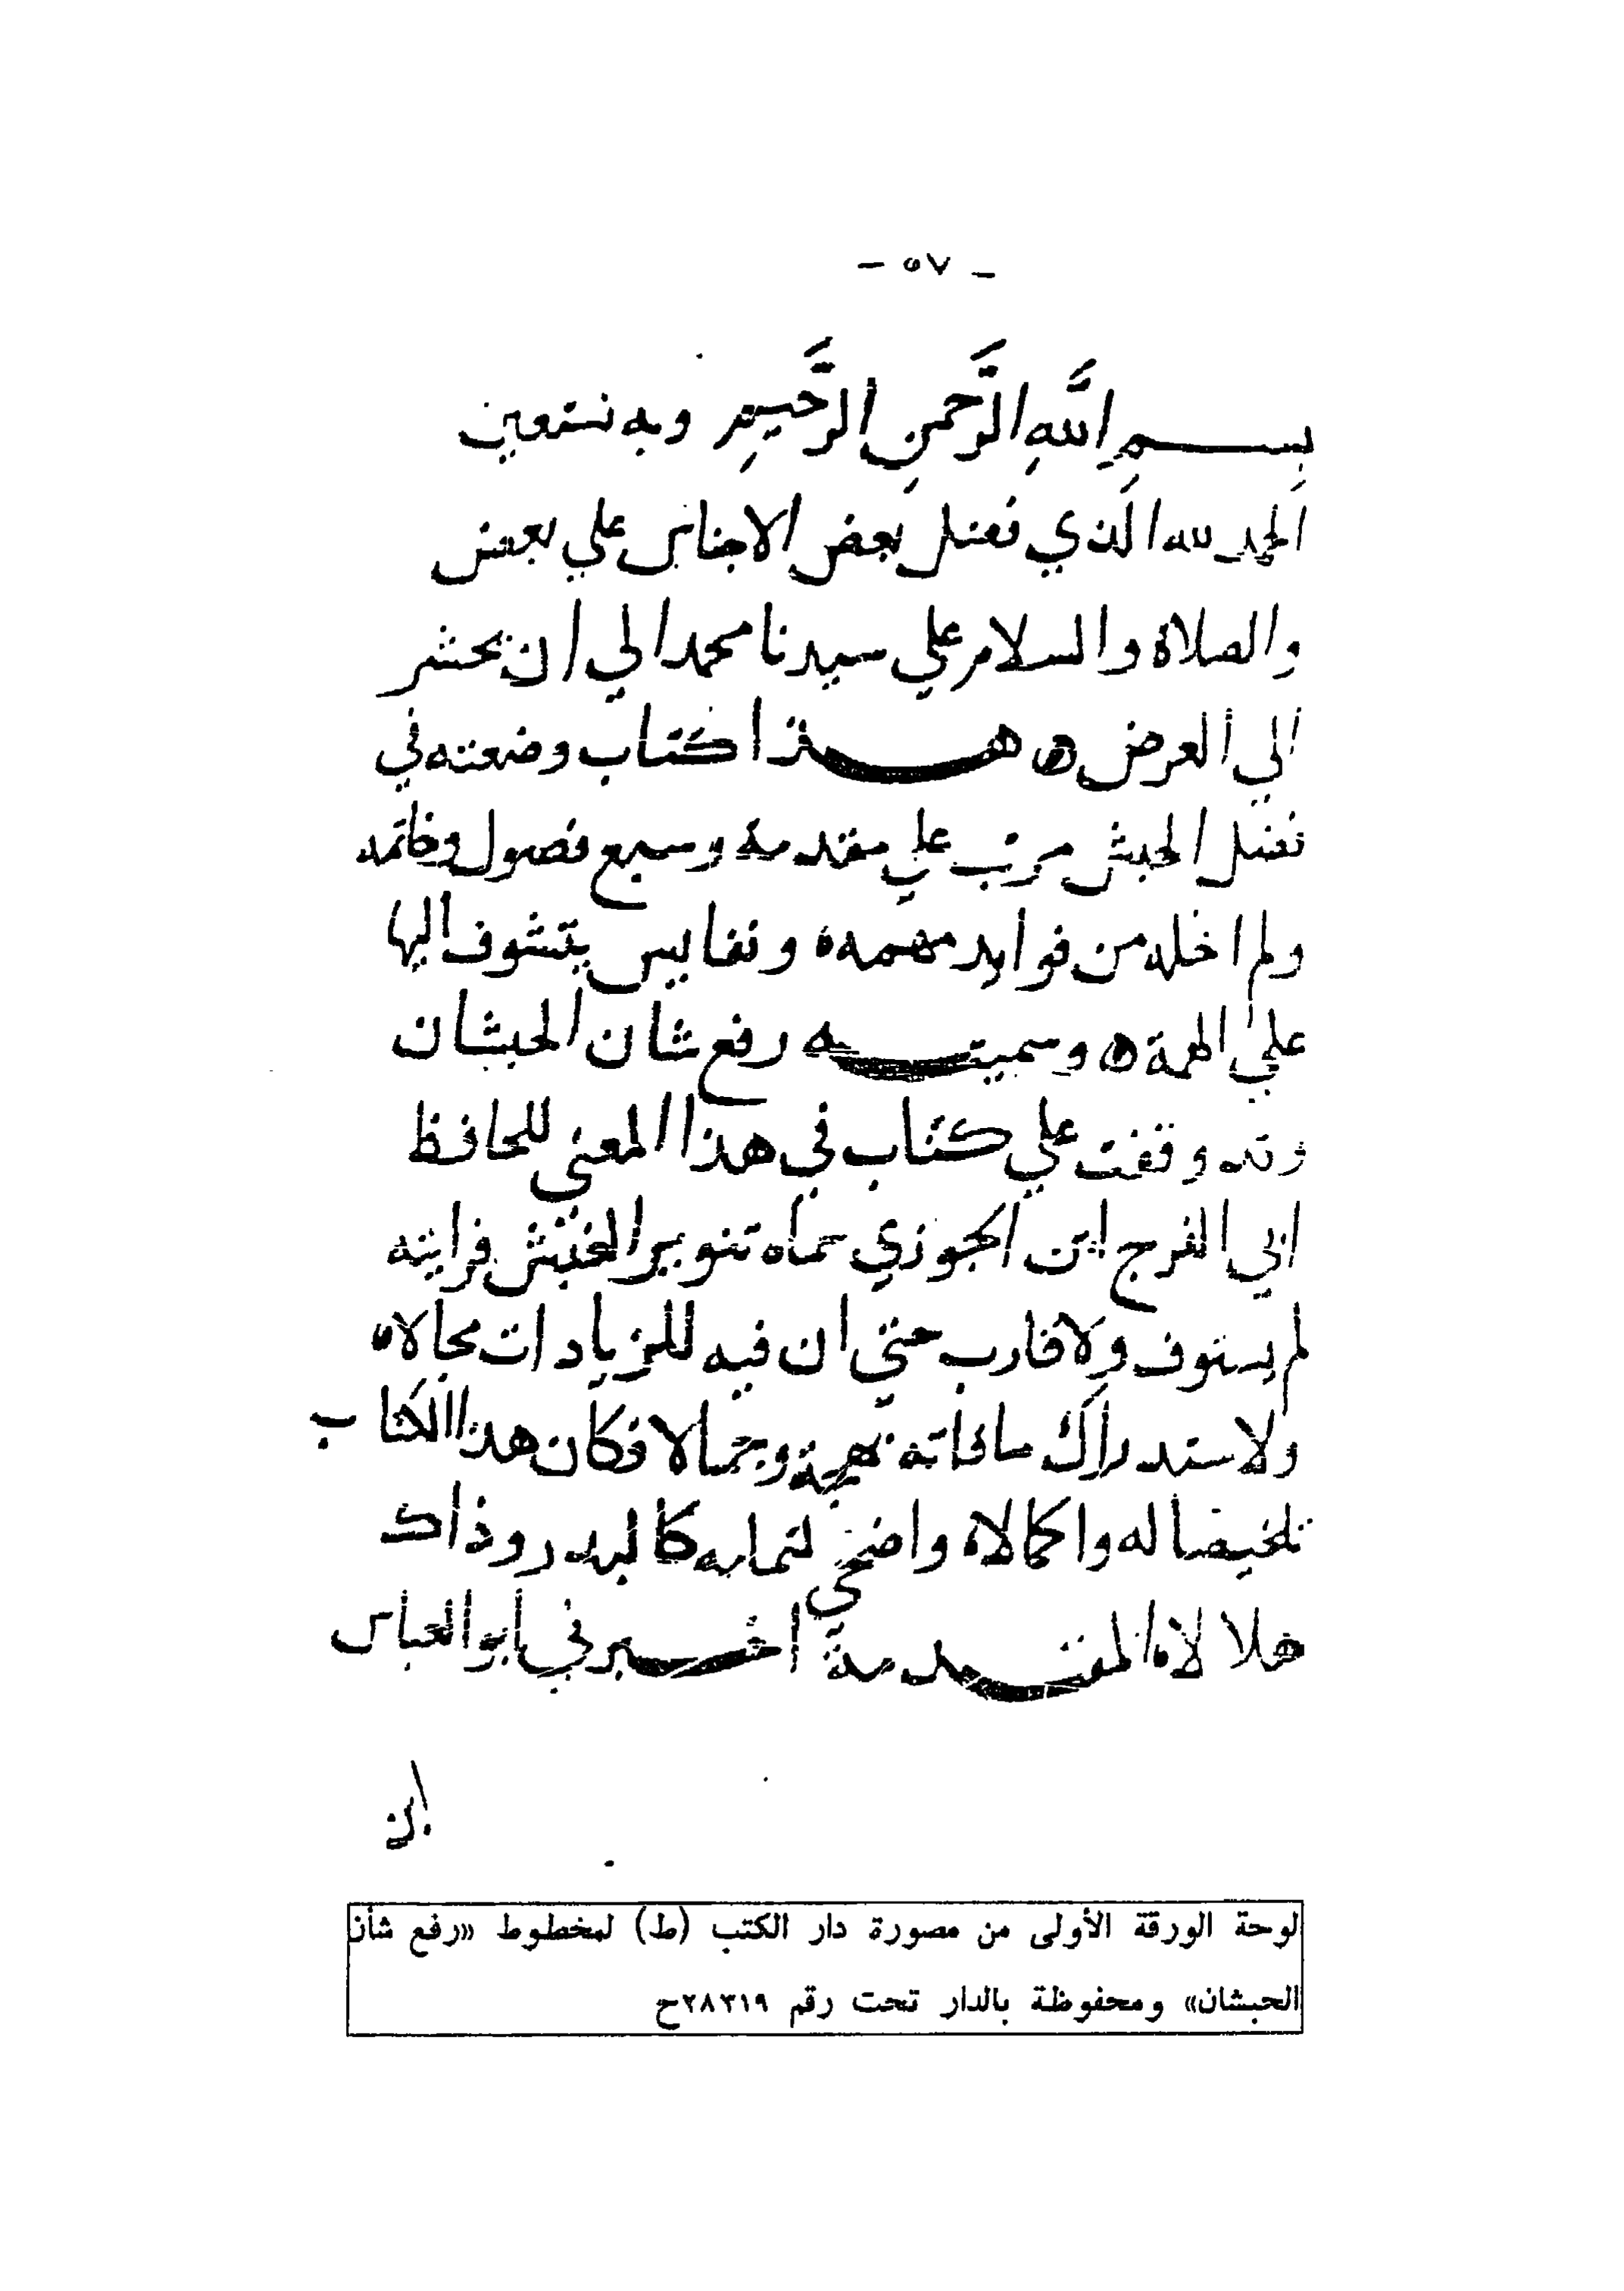 - ٥٧ -
بِســـمِ اللهِ الرَّحمنِ الرَّحيمِ وبه نستعين
الحمد لله الذي فضل بعض الاجناس علي بعض
والصلاة والسلام علي سيدنا محمد الي ان يحشر
الي العرض ه هـــذا كتاب وضعته في
فضل الحبش مرتب علي مقدمة وسبع فصول وخاتمه
ولم اخله من فوايد مهمه ه ونفايس يتشوف اليها
علي الهمة ه وسميتـــه رفع شان الحبشان
وقد وقفت علي كتاب في هذا المعني للحافظ
ابي الفرج ابن الجوزي سماه تنوير الغبش فرايته
لم يستوف ولا قارب حتي ان فيه للزيادات مجالا ه
ولاستدراك ما فاته وجمالا فكان هذا الكتاب
تلخيصا له واكمالا ه واضحي لتمامه كالبدر وذاك
هلالا ه المقـــدمة اخـــبرني ابو العباس
ابن
لوحة الورقة الأولى من مصورة دار الكتب (ط) لمخطوط «رفع شأن
الحبشان» ومحفوظة بالدار تحت رقم ٢٨٣١٩ح